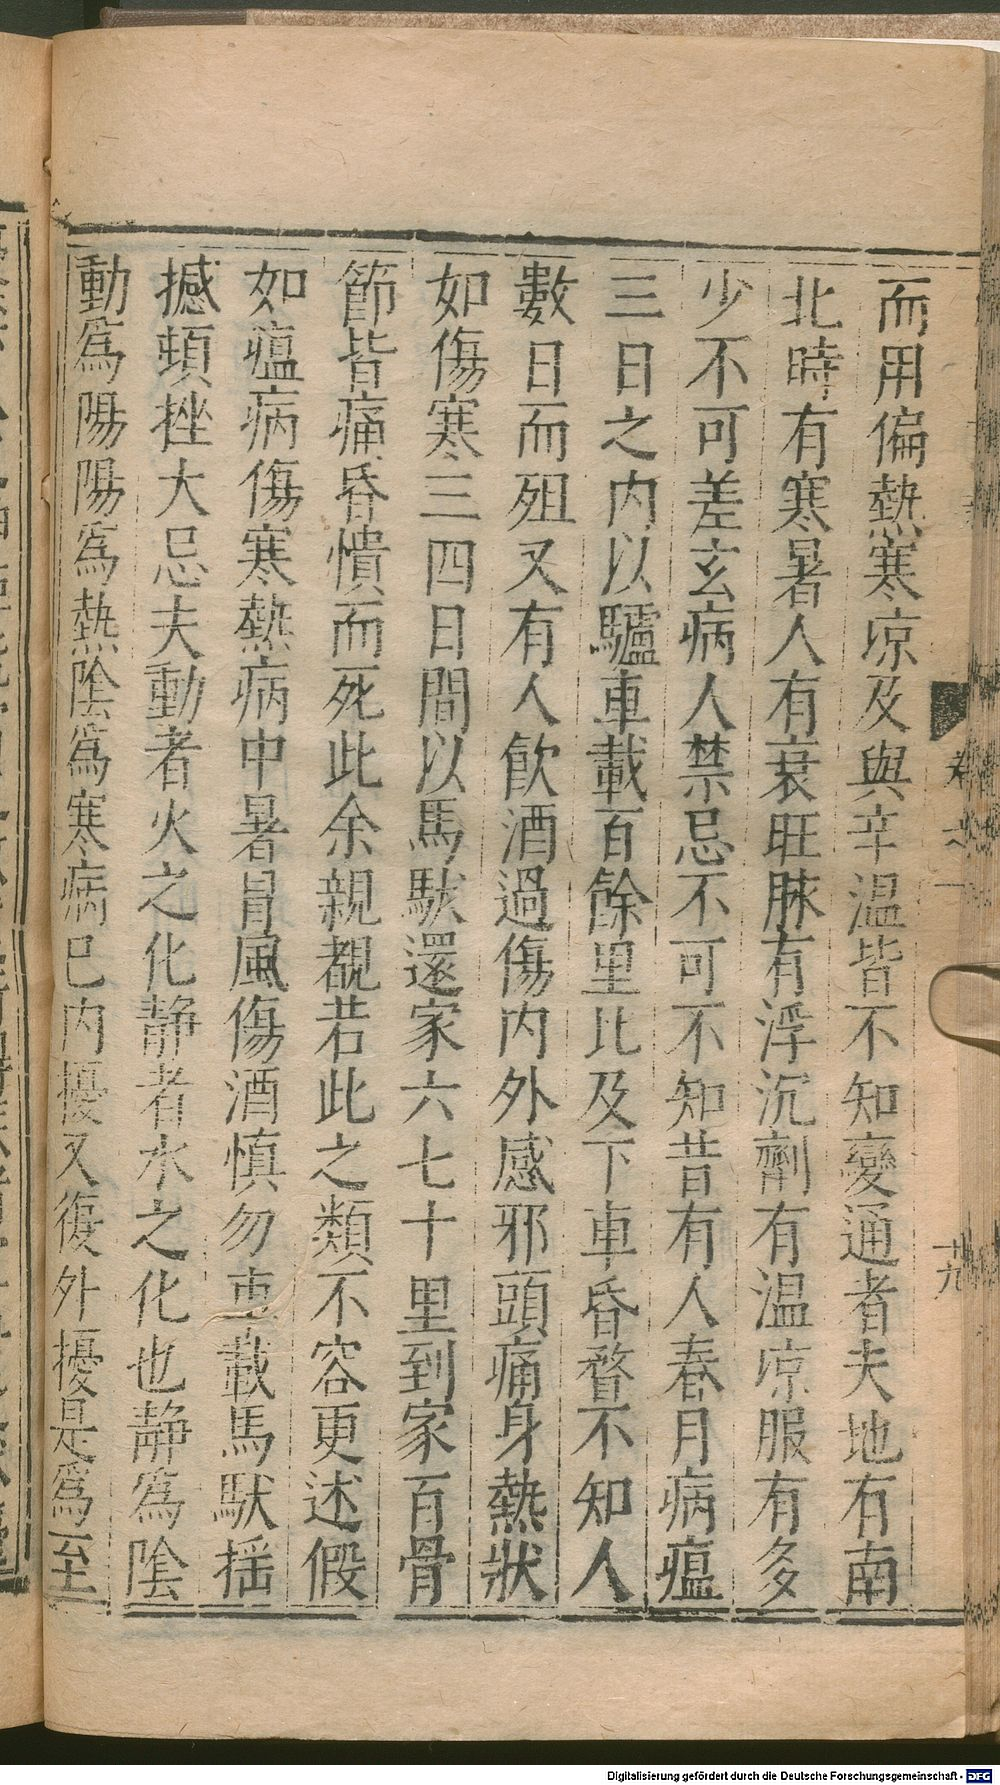 而用偏熱寒凉及與辛温皆不知變通者夫地有南
北時有寒暑人有衰旺脉有浮沉劑有温凉服有多
少不可差玄病人禁忌不可不知昔有人春月病瘟
三日之内以驢車載百餘里比及下車昏瞀不知人
數日而殂又有人飲酒過傷内外感邪頭痛身熱狀
如傷寒三四日間以馬馱還家六七十里到家百骨
節皆痛昏憒而死此余親覩若此之類不容更述假
如瘟病傷寒熱病中暑冒風傷酒慎勿車載馬馱揺
撼頓挫大忌夫動者火之化静者水之化也静爲陰
動爲陽陽爲熱陰爲寒病已内擾又復外擾是爲至
十九
Digitalisierung gefördert durch die Deutsche Forschungsgemeinschaft - DFG